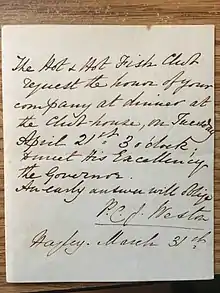 The Hot & Hot Fish Club
request the honor of your
company at dinner at
the Club house, on Tuesday
April 21st. 3 o'clock
to meet His Excellency
the Governor.
An early answer will oblige
P. C. J. Weston
Hagley. March 31st.